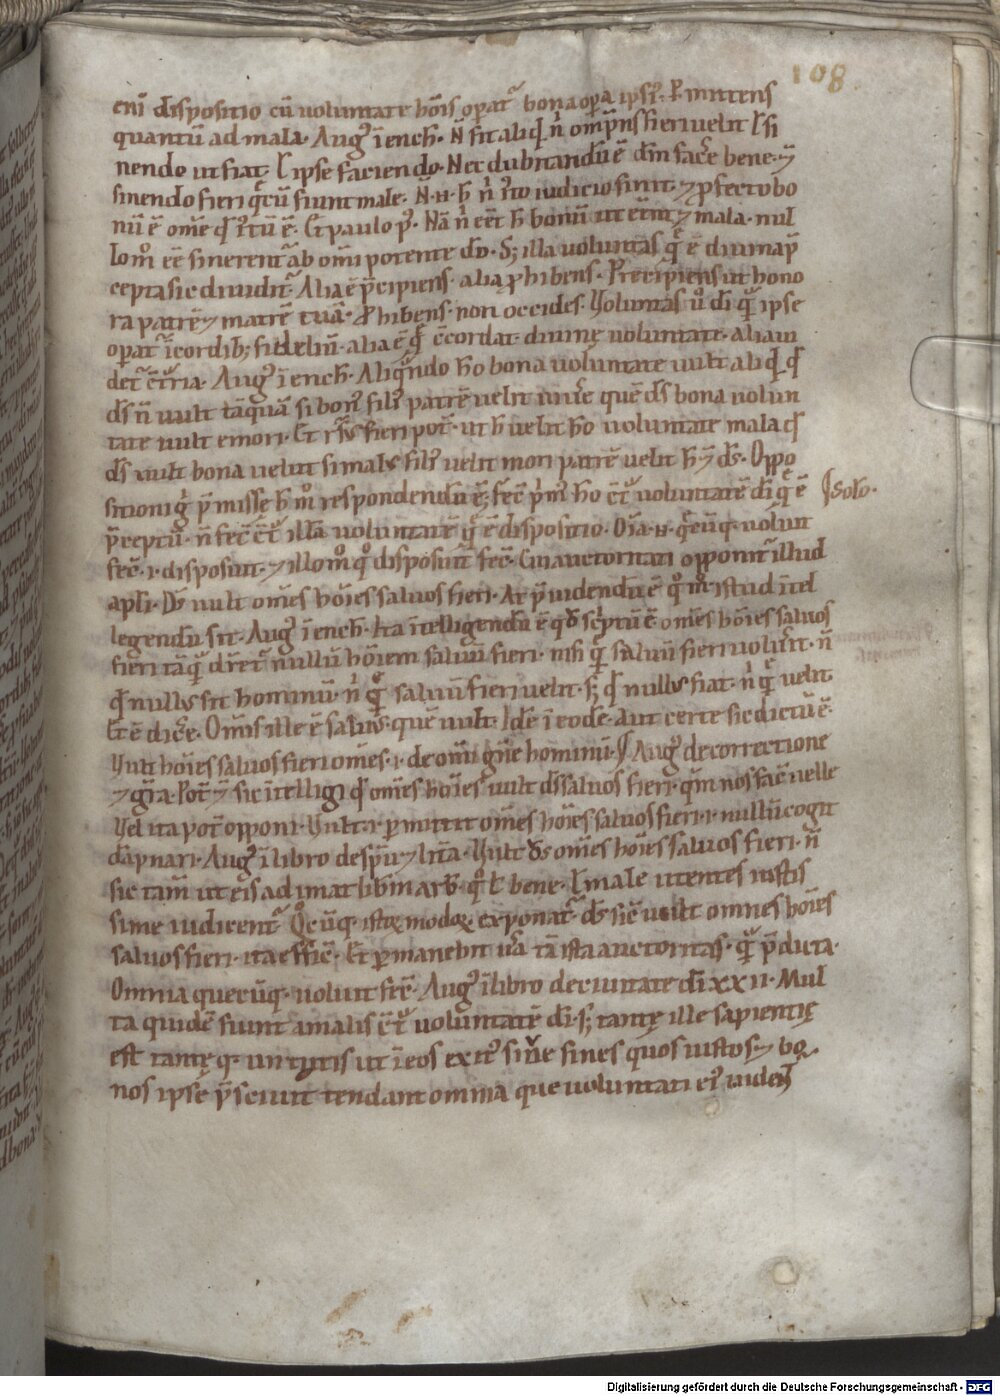 108
eni dispositio cū voluntate hōis opat᷑ bona opa ipsi᷒. Pmittens
quantū ad mala. Aug᷒ ī ench. N̄ fit aliqd n̄ omps fieri velit ł si
nendo ut fiat. ł ipse faciendo. Nec dubitandū ē dm facˈe bene. ⁊
sinendo fieri q̄cū fiunt male. N̄. n. h n̄ iˈto iudicio sinit. ⁊ pfecto bo
nū ē om̄e qd iˈtū ē. Et paulo p᷒. Nā n̄ eēt h bonū ut eēnt ⁊ mala. nul
lo mº eē sinerent᷑ ab omīpotente do. S; illa voluntas q̄ ē diuina p̄
cepta sic diuidit᷑. Alia ē p̄cipiens. alia phibens. Precipiens ut hono
ra patrē ⁊ matrē tuā. Phibens. non occides. Voluntas ū di q̄ ipse
opat᷑ ī cordib; fideliū. alia ē q̄ ↄcordat diuinę voluntate. alia ui
det᷑ ↄt̄ria. Aug᷒ ī ench. Aliqndo ho bona voluntate vult aliqd qd
ds n̄ vult tāquā si bon᷒ fili᷒ patrē velit uiuˈe quē ds bona volun
tate vult emori. Et rˈs᷒ fieri pot. ut h velit ho voluntate mala qd
ds vult bona velut si mal᷒ fili᷒ velit mori patrē velit h ⁊ ds. Oppo
sitioni g᷒ p̄misse h mº respondendū ē; fec pˈm᷒ ho ↄt̄ voluntatē di q̄ ē
Solo.
p̄ceptū. n̄ fec ↄt̄ illā voluntatē q̄ ē dispositio. Oīa. n. q̄cūq. voluit
fec. i. disposuit. ⁊ illo mº qº disposuit fec. Cui auctoritati opponit᷑ illud
apli. Ds vult om̄es hōies saluos fieri. At p̄uidendū ē qº mº istud ītel
legendū sit. Aug᷒ ī ench. Ita ītelligendū ē qd scˈptū ē om̄es hōies saluos
fieri tāq̄ dˈret᷑ nullū hōiem saluū fieri. nisi q̄ saluū fieri voluˈit. n̄
qd null᷒ sit hominū. n̄ q̄ saluū fieri velit. s; qd null᷒ fiat. n̄ q̄ velit
Et ē dicˈe. Omīs ille ē salu᷒. quē vult. Idē ī eodē. Aut certe sic dictū ē.
Vult hōies saluos fieri om̄es. i. de omī gn̄e hominū. Aug᷒ de correctione
⁊ gr̄a. Pot ⁊ sic ītelligi qd om̄es hōies vult ds saluos fieri. qm̄ nos facˈe velle
Vel ita pot opponi. Vult. i. pmittit om̄es hōies saluos fieri. i. nullū cogit
dāpnari. Aug᷒ ī libro de spū ⁊ litˈa. Vult ds om̄es hōies saluos fieri. n̄
sic tam̄ ut eis adimat libm̄ arb. qº ł bene. ł male utentes iustis
sime iudicent᷑. Qºcūq. istoꝝ modoꝝ exponat᷑. ds sic vult omnes hōies
saluos fieri. ita effic. Et pmanebit uˈa tā ista auctoritas. q̄ p̄dicta.
Omnia quecūq. voluit fec. Aug᷒ ī libro de ciuitate di xxii. Mul
ta quidē fiunt a malis ↄt̄ voluntatē di. s; tantę ille sapientię
est tantęq. uirtutis ut ī eos exit᷒ siue fines quos iustos ⁊ bo
nos ipse p̄sciuit tendant omnia que voluntati ei᷒ uidet᷑
Digitalisierung gefördert durch die Deutsche Forschungsgemeinschaft - DFG